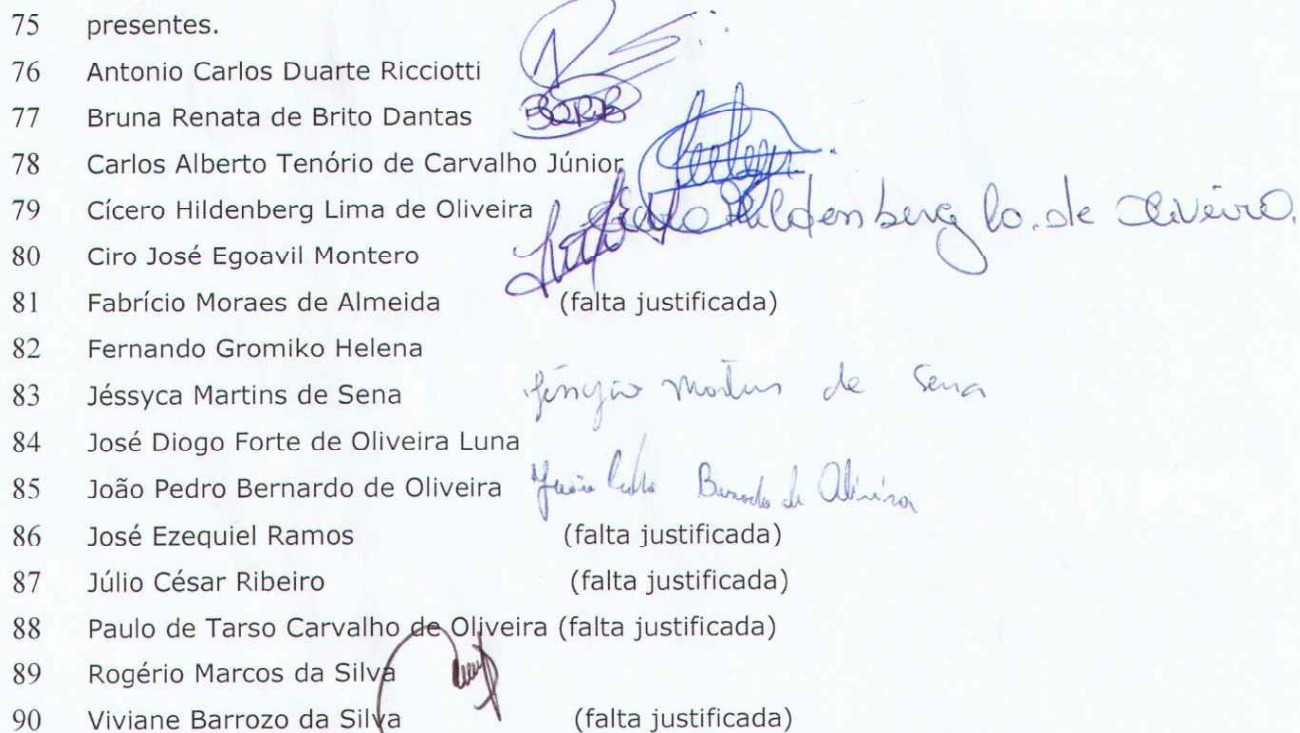 75 presentes.
76 Antonio Carlos Duarte Ricciotti
77 Bruna Renata de Brito Dantas BRB
78 Carlos Alberto Tenório de Carvalho Júnior
79 Cícero Hildenberg Lima de Oliveira Cícero Hildenberg L. de Oliveira.
80 Ciro José Egoavil Montero
81 Fabrício Moraes de Almeida (falta justificada)
82 Fernando Gromiko Helena
83 Jéssyca Martins de Sena Jéssyca Martins de Sena
84 José Diogo Forte de Oliveira Luna
85 João Pedro Bernardo de Oliveira João Pedro Bernardo de Oliveira
86 José Ezequiel Ramos (falta justificada)
87 Júlio César Ribeiro (falta justificada)
88 Paulo de Tarso Carvalho de Oliveira (falta justificada)
89 Rogério Marcos da Silva
90 Viviane Barrozo da Silva (falta justificada)